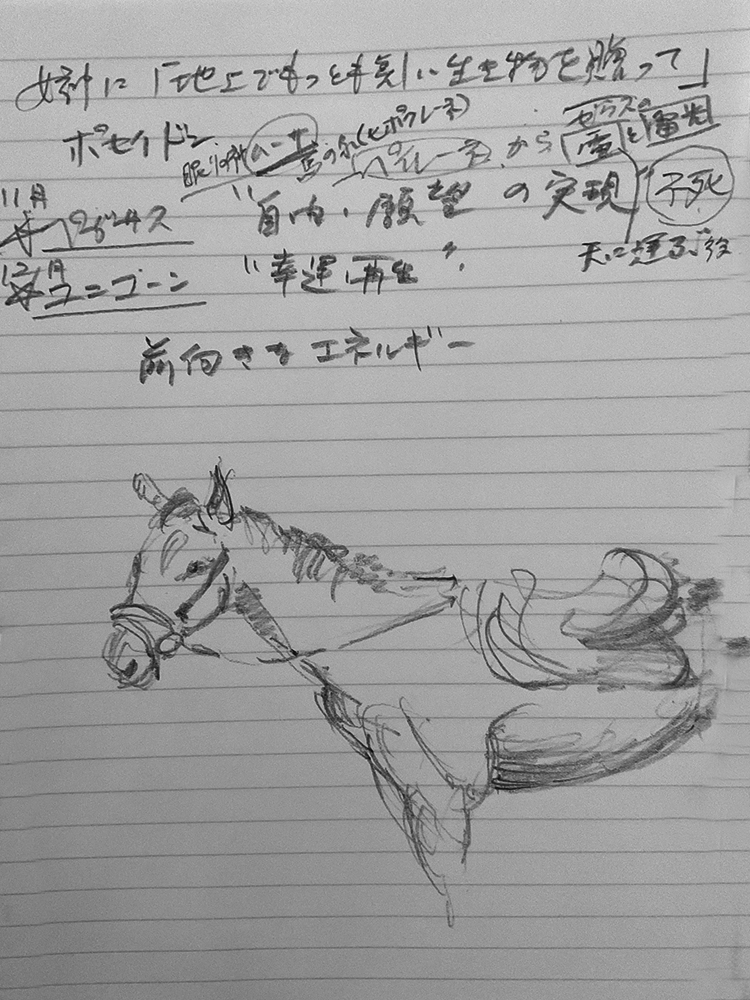 女神に「地上でもっとも美しい生物を贈って」
ポセイドン
馬の泉(ヒポクレーネ)
ペイレーネ から ゼウスの 雷と電光
11月
ペガサス "自由・願望の実現" 不死
天に運ぶ役
12月
ユニコーン "幸運・再生"
前向きなエネルギー